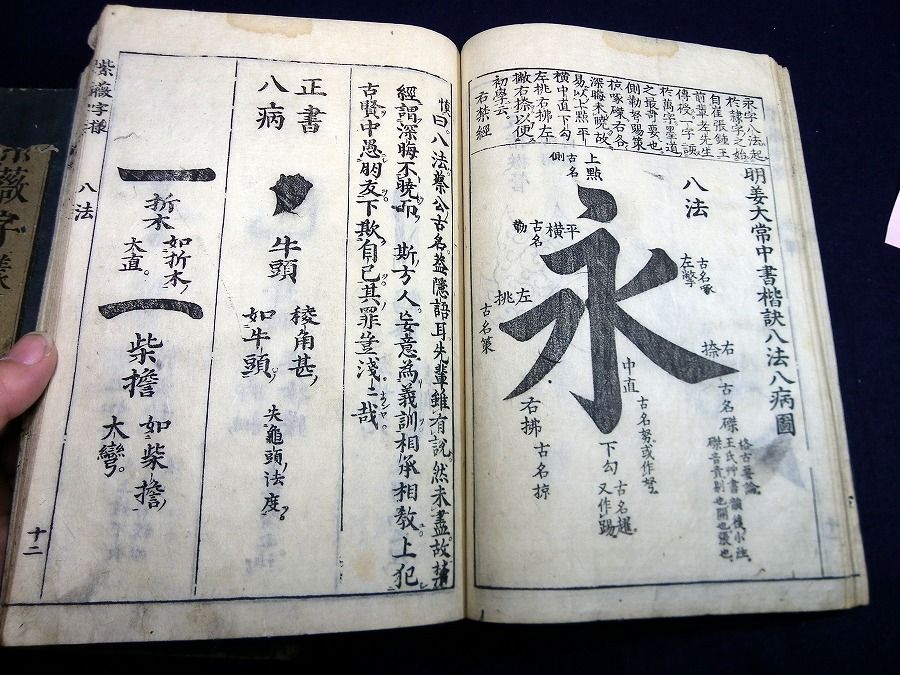 永字八法起
於隷字之始
自崔張鍾王
傳授一字該
於萬字墨道
之最奇要也
側勒努趯策
掠啄磔右各
深晦未曉故
易以上點平
橫中直下勾
左挑右拂左
撇右捺以便
初學云
右禁經
明姜大常中書楷訣八法八病圖
八法
上點
古名側
平橫
古名勒
左挑
古名策
永
古名啄
左撆
右捺
古名磔
中直
古名努。或作弩。
下勾
古名趯。又作踢
右拂
古名掠
慎曰八法蔡公古名益隱語耳先輩雖有說。然未盡。故禁
經謂深晦不曉而 斯方人妄意為義訓相承相教上犯
古賢中愚朋友下欺自己其罪豈淺淺哉
正書
八病
牛頭
稜角甚
如牛頭
失龜頭法度。
折木
如折木
大直。
柴擔
如柴擔
大彎。
紫薇字様
八法
十二
薇字